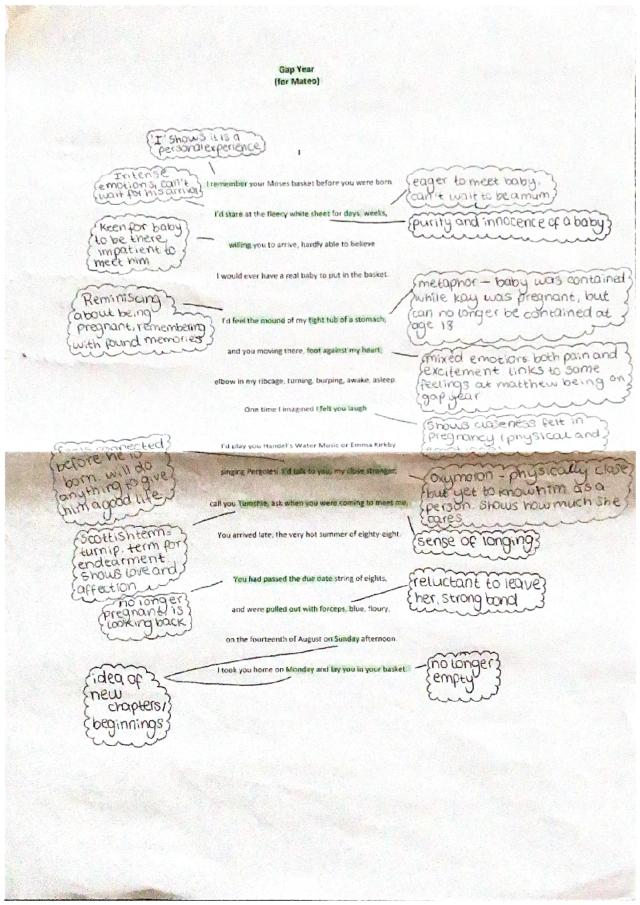 Gap Year
(for Mateo)
'I' shows it is a
personal experience
I
Intense
emotions, can't
wait for his arrival
I remember your Moses basket before you were born.
eager to meet baby.
can't wait to be a mum
I'd stare at the fleecy white sheet for days, weeks,
purity and innocence of a baby
Keen for baby
to be there,
impatient to
meet him
willing you to arrive, hardly able to believe
I would ever have a real baby to put in the basket.
Reminiscing
about being
pregnant, remembering
with found memories
metaphor - baby was contained
while kay was pregnant, but
can no longer be contained at
age 18
I'd feel the mound of my tight tub of a stomach,
and you moving there, foot against my heart,
mixed emotions both pain and
excitement links to some
feelings at matthew being on
gap year
elbow in my ribcage, turning, burping, awake, asleep.
One time I imagined I felt you laugh
shows closeness felt in
pregnancy (physical and
I'd play you Handel's Water Music or Emma Kirkby
connected
before he is
born. will do
anything to give
him a good life
singing Pergolesi. I'd talk to you, my close stranger,
oxymoron - physically close
but yet to know him as a
person. Shows how much she
cares
call you Tumshie, ask when you were coming to meet me.
sense of longing
Scottish term-
turnip. term for
endearment
shows love and
affection
You arrived late, the very hot summer of eighty-eight.
You had passed the due date string of eights,
no longer
pregnant is
looking back
reluctant to leave
her, strong bond
and were pulled out with forceps, blue, floury,
on the fourteenth of August on Sunday afternoon.
I took you home on Monday and lay you in your basket.
idea of
new
chapters/
beginnings
no longer
empty